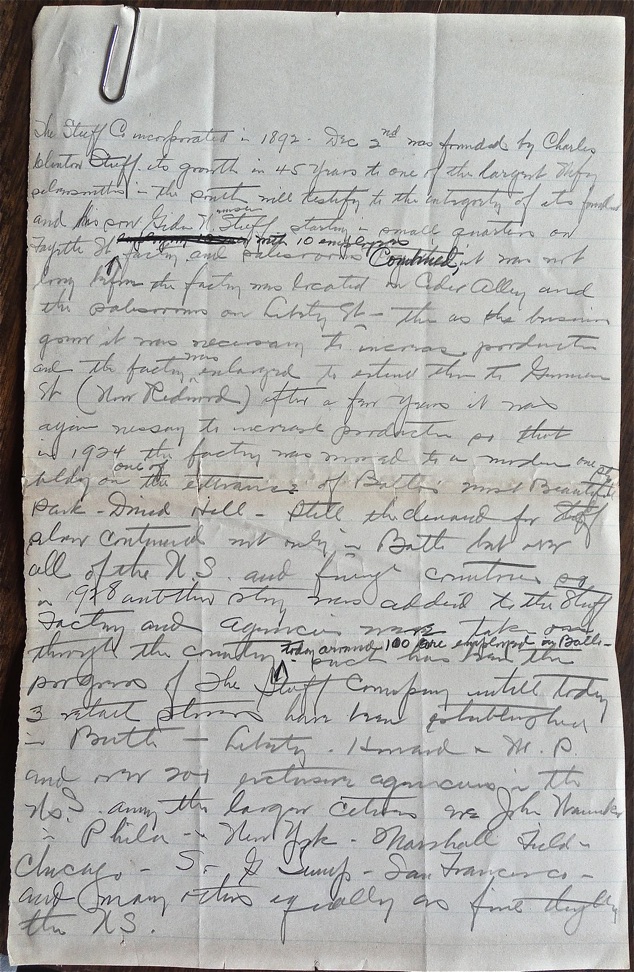 The Stieff Co incorporated in 1892 - Dec 2nd was founded by Charles
Clinton Stieff. its growth in 45 years to one of the largest
silversmiths in the south will testify to the integrity of its founder
and his son Gideon N. Stieff starting in small quarters on
Fayette St with 10 employees
factory and salesrooms Combined, it was not
long before the factory was located in Cider Alley and
the salesrooms on Liberty St - then as the business
grew it was necessary to increase production
and the factory was enlarged to extend thru to German
St (Now Redwood) after a few years it was
again nessary to increase production so that
in 1924 the factory was moved to a modern one st
bldg on one of the entrances of Balto's most Beautiful
Park - Druid Hill - Still the demand for Stieff
silver continued not only in Balto but over
all of the U.S. and foreign countries so
in 1928 another story was added to the Stieff
Factory and agencies were taken on
through the country today around 100 are employed in Balto -
such has been the
progress of The Stieff Company untill today
3 retail stores have been established
in Balto - Liberty. Howard & M. P.
and over 201 exclusive agencies in the
U.S. among the larger cities are John Wanamaker
in Phila - New York - Marshall Field -
Chicago - S. & G Gump - San Francisco -
and many others equally as fine
the U.S.